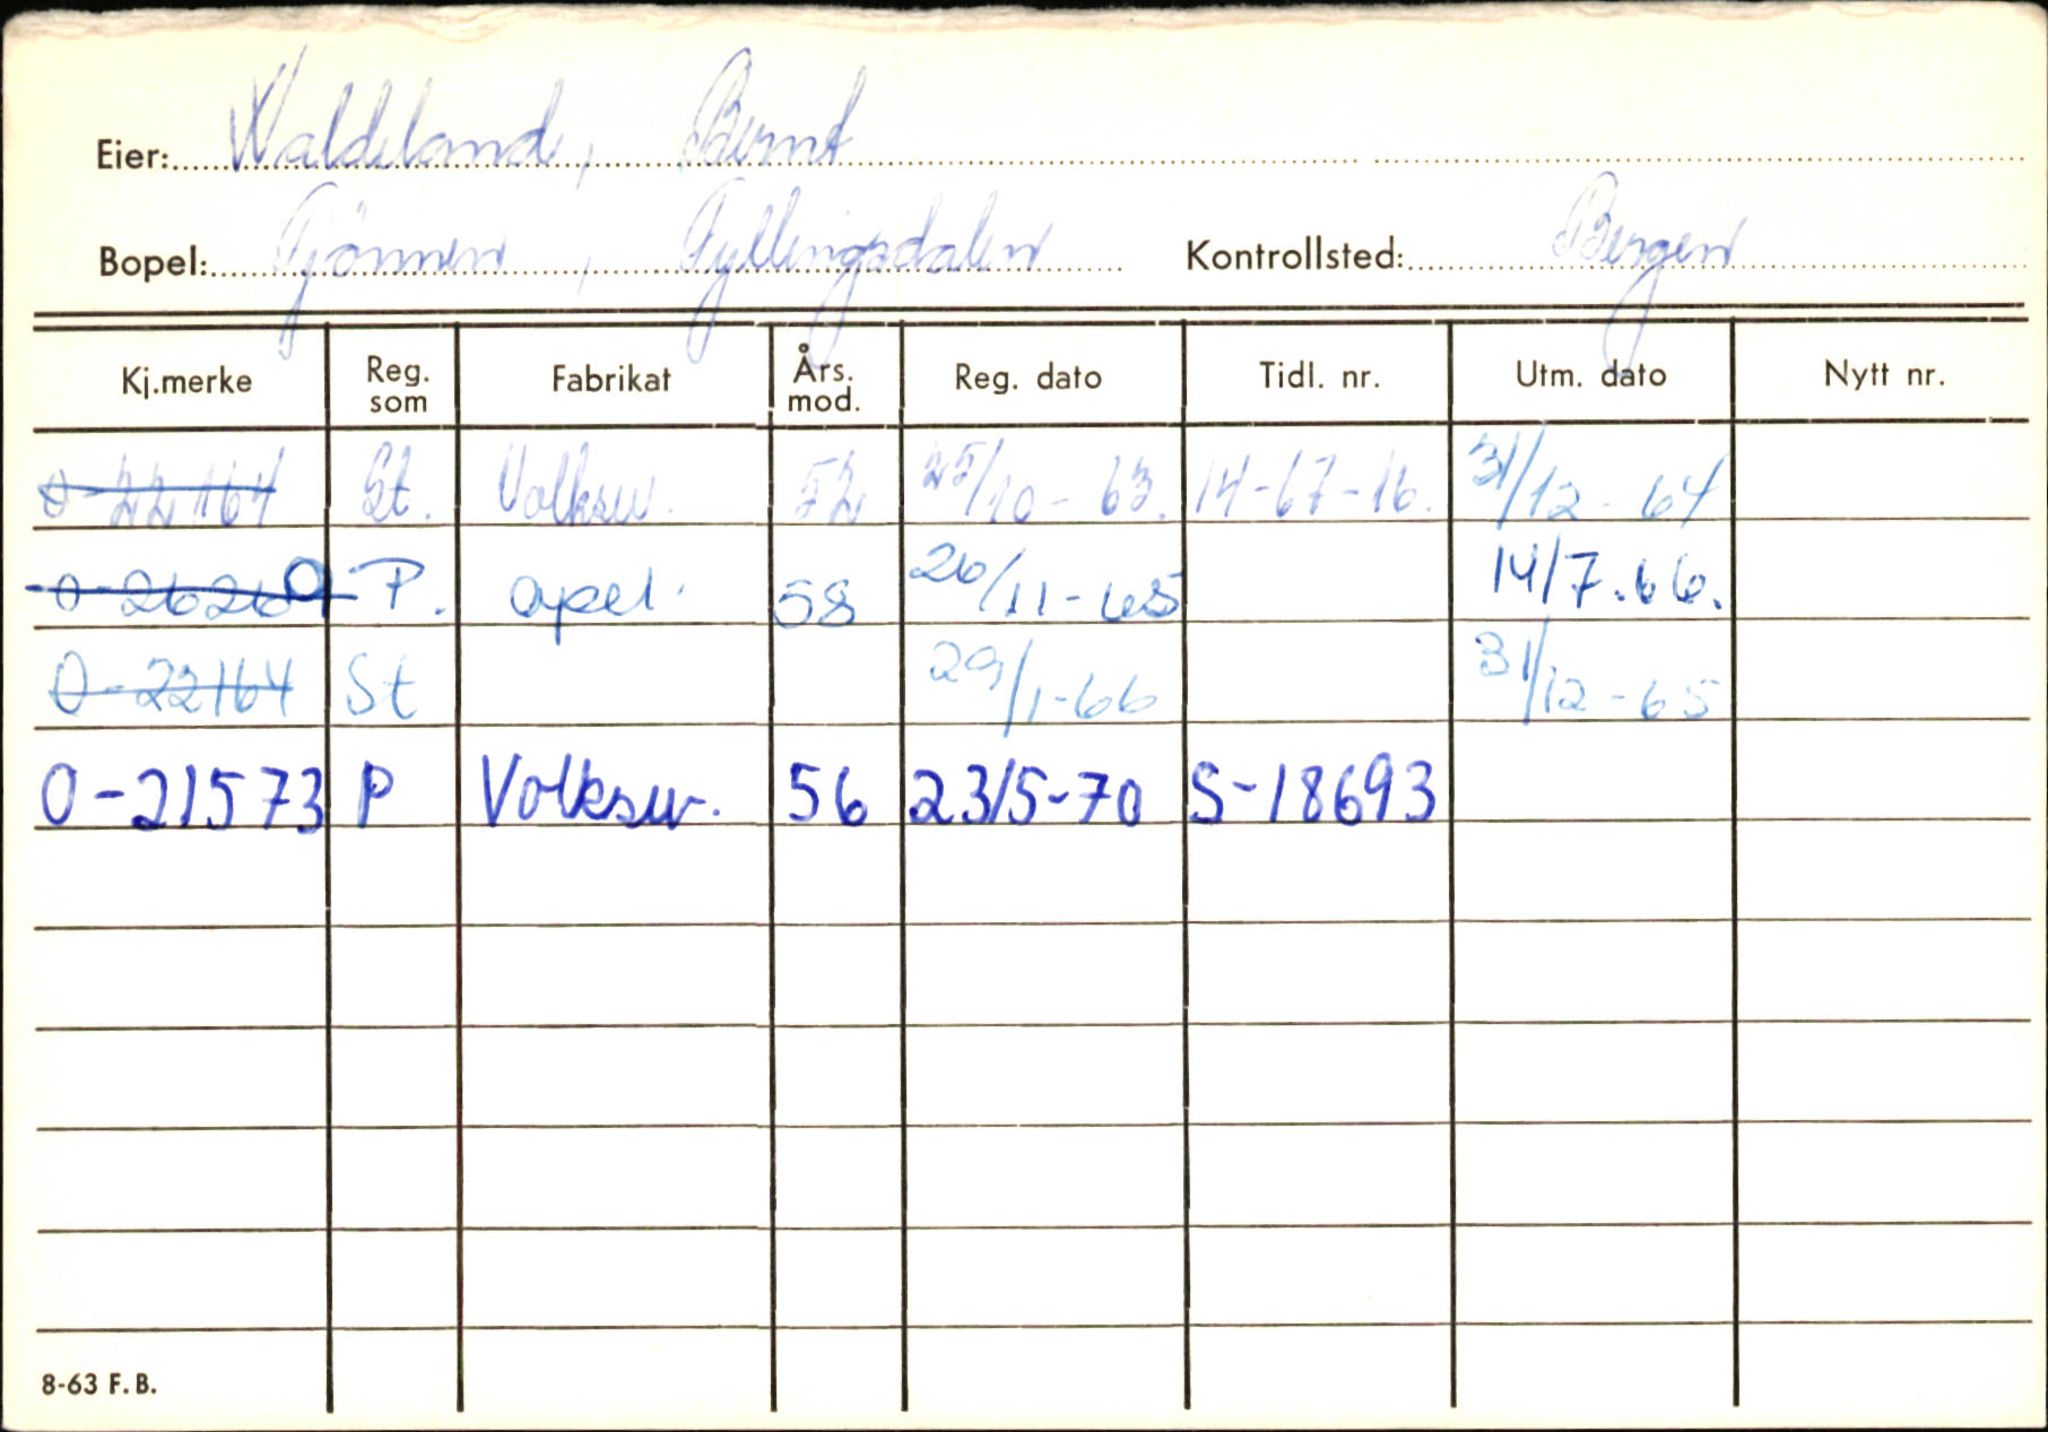 Eier: Waldeland, Bernt
Bopel: Tjönnen, Fyllingsdalen Kontrollsted: Bergen
Kj.merke Reg. som Fabrikat Års. mod. Reg. dato Tidl. nr. Utm. dato Nytt nr.
O-22164 St. Volksw. 52 25/10-63. 14-67-16. 31/12-64
O-26269 P. Opel. 58 26/11-65 14/7.66.
O-22164 St 29/1-66 31/12-65
O-21573 P Volksw. 56 23/5-70 S-18693
8-63 F.B.